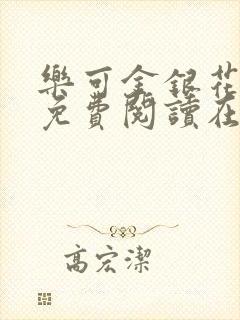 樂可金銀花
免費閱讀在
高宏潔